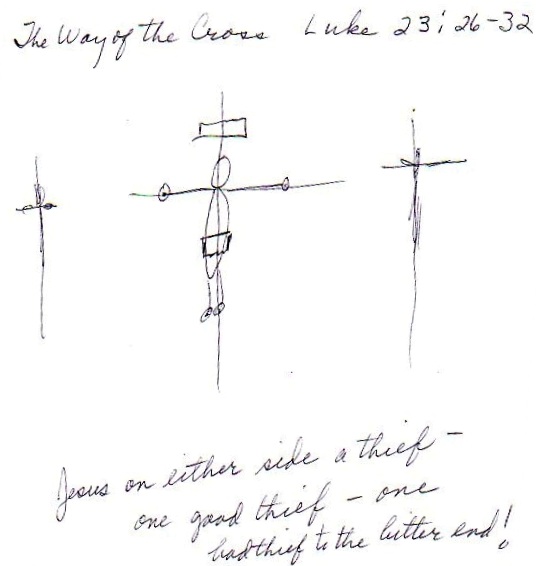 The Way of the Cross Luke 23: 26-32
Jesus on either side a thief -
one good thief - one
bad thief to the bitter end!